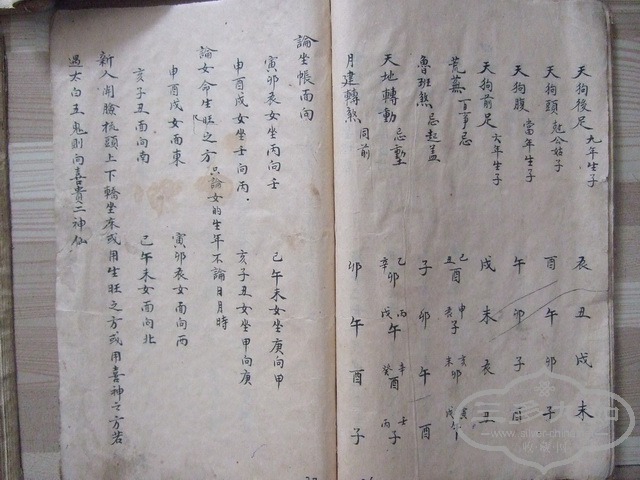 天狗後足 九年生子 辰 丑 戌 未
天狗頭 尅公姑子 酉 午 卯 子
天狗腹 當年生子 午 卯 子 酉
天狗前足 六年生子 戌 未 辰 丑
荒蕪 百事忌 巳酉丑 申子辰 亥卯未 寅午戌
魯班煞 忌起盖 子 卯 午 酉
天地轉動 忌 乙卯辛 丙午戊 辛酉癸 壬子丙
月建轉煞 同前 卯 午 酉 子
論坐帳面向
寅卯辰女坐丙向壬 巳午未女坐庚向甲
申酉戌女坐壬向丙 亥子丑女坐甲向庚
論女命生旺之方 只論女的生年不論日月時
申酉戌女面東 寅卯辰女面向西
亥子丑面向南 巳午未女面向北
新人開臉梳頭上下轎坐床或用生旺之方或用喜神之方若
遇太白王鬼則向喜貴二神仙